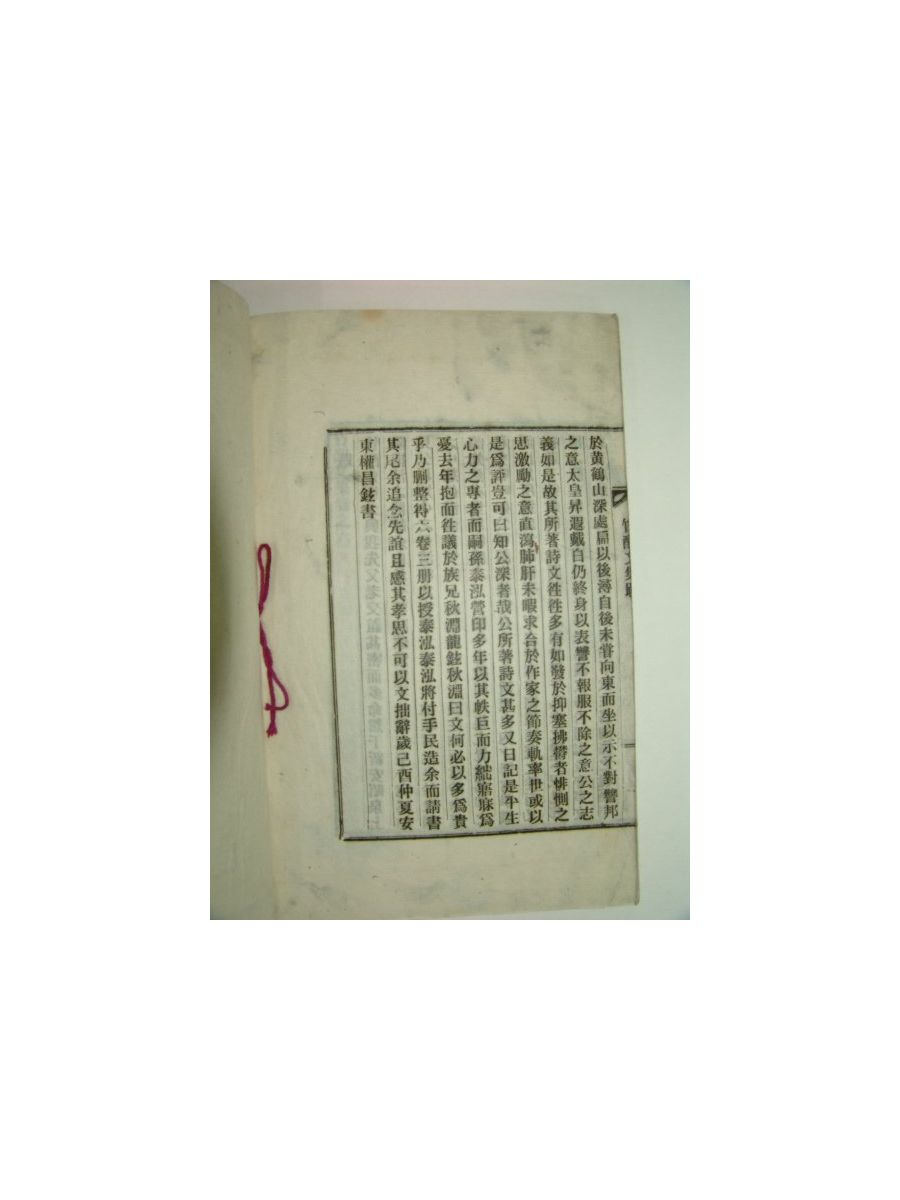 於黃鶴山深處扁以後潯自後未甞向東而坐以示不對讐邦
之意太皇昇遐戴白仍終身以表讐不報服不除之意公之志
義如是故其所著詩文徃徃多有如發於抑塞拂欝者悱惻之
思激勵之意直瀉肺肝未暇求合於作家之節奏軌率世或以
是爲評豈可曰知公深者哉公所著詩文甚多又日記是平生
心力之專者而嗣孫泰泓營印多年以其帙巨而力絀寤寐爲
憂去年抱而徃議於族兄秋淵龍鉉秋淵曰文何必以多爲貴
乎乃刪整得六卷三册以授泰泓泰泓將付手民造余而請書
其尾余追念先誼且感其孝思不可以文拙辭歲己酉仲夏安
東權昌鉉書